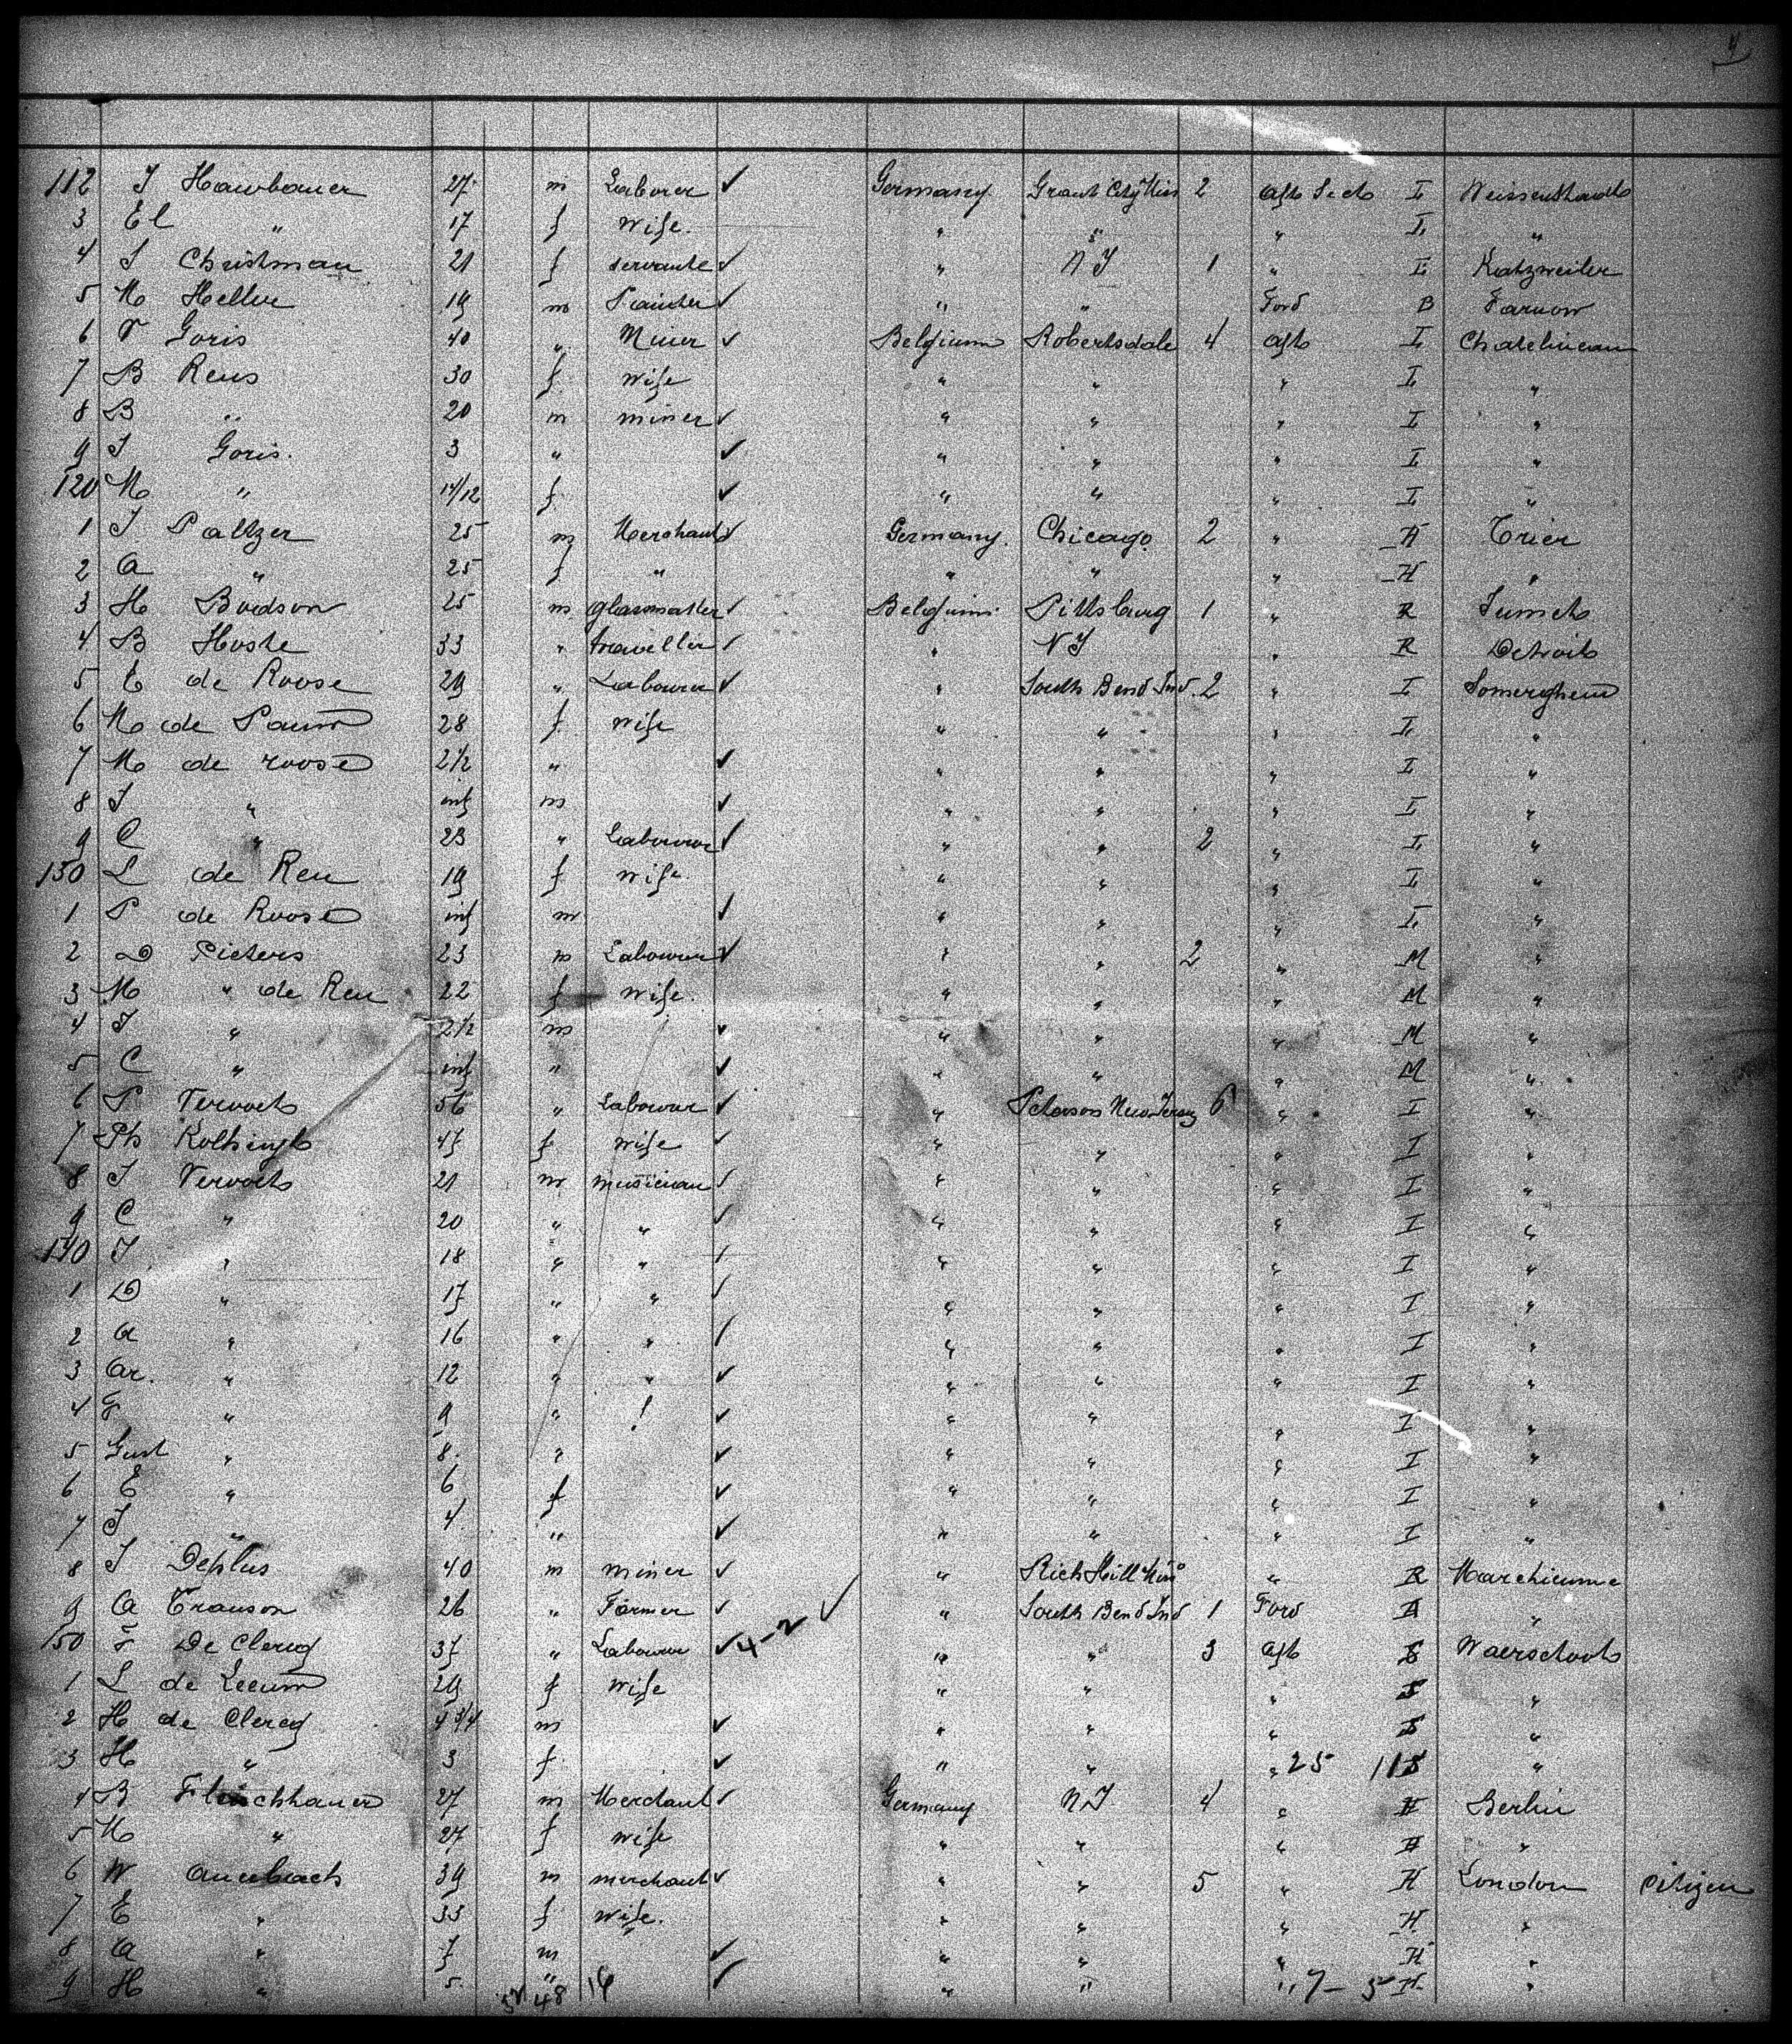 112 J Hawbauer 27 m Laborer ✓ Germany Grant City 2 Aft Sect I
3 El " 17 f wife. " " " I "
4 S Christman 21 f servante ✓ " N J 1 " I Katzweiler
5 M Heller 19 m Painter ✓ " " Ford B Tarnow
6 V Goris 40 " Miner ✓ Belgium Robertsdale 4 Aft I Chatelineau
7 B Rens 30 f wife " " " I "
8 B " 20 m miner ✓ " " " I "
9 J Goris. 3 " ✓ " " " I "
120 M " 11/12 f ✓ " " " I "
1 J Paltzer 25 m Merchant ✓ Germany. Chicago 2 " H Trier
2 A " 25 f " " " " H "
3 H Boedson 25 m ✓ Belgium Pittsburg 1 " R Jumet
4 B Hoste 33 " traveller ✓ " N J " R Detroit
5 E de Roose 29 " Labourer ✓ " South Bend Ind. 2 " I Somerghem
6 M de Pauw 28 f wife " " " I "
7 M de roose 2 1/2 " ✓ " " " I "
8 J " inf m ✓ " " " I "
9 C " 23 " Labourer ✓ " " 2 " I "
130 L de Reu 19 f wife. " " " I "
1 P de Roose inf m ✓ " " " I "
2 D Pieters 23 m Labourer ✓ " " 2 " M "
3 M " de Reu 22 f wife. " " " M "
4 J " 2 1/2 m ✓ " " " M "
5 C " inf " ✓ " " " M "
6 P Vervoet 56 " Labourer ✓ " Peterson New Jersey 6 " I "
7 Ph 47 f wife ✓ " " " I "
8 J Vervoet 21 m musician ✓ " " " I "
9 C " 20 " " ✓ " " " I "
140 J " 18 " " ✓ " " " I "
1 D " 17 " " ✓ " " " I "
2 A " 16 " " ✓ " " " I "
3 Ar. " 12 " " ✓ " " " I "
4 F " 9 " ! ✓ " " " I "
5 Gust " 8. " ✓ " " " I "
6 E " 6 f ✓ " " " I "
7 J " 4 " ✓ " " " I "
8 J Deplus 40 m miner ✓ " Rich Hill " R
9 A Transon 26 " Farmer ✓ ✓ " South Bend Ind 1 Ford "
150 F De Clercq 37 " Labourer ✓ 4-2 " " 3 Aft S Waerschoot
1 L de Leeuw 29 f wife " " " S "
2 H de Clercq 4 3/4 m ✓ " " " S "
3 H " 3 f ✓ " " " 25 11 S "
4 B 27 m Merchant ✓ Germany N J 4 " H Berlin
5 M " 27 f wife " " " H "
6 W Auerbach 39 m merchant ✓ " " 5 " H London citizen
7 E " 33 f wife. " " " H "
8 A " 7 m ✓ " " " H "
9 H " 5 " ✓ " " " 7 - 5 H "
48 14